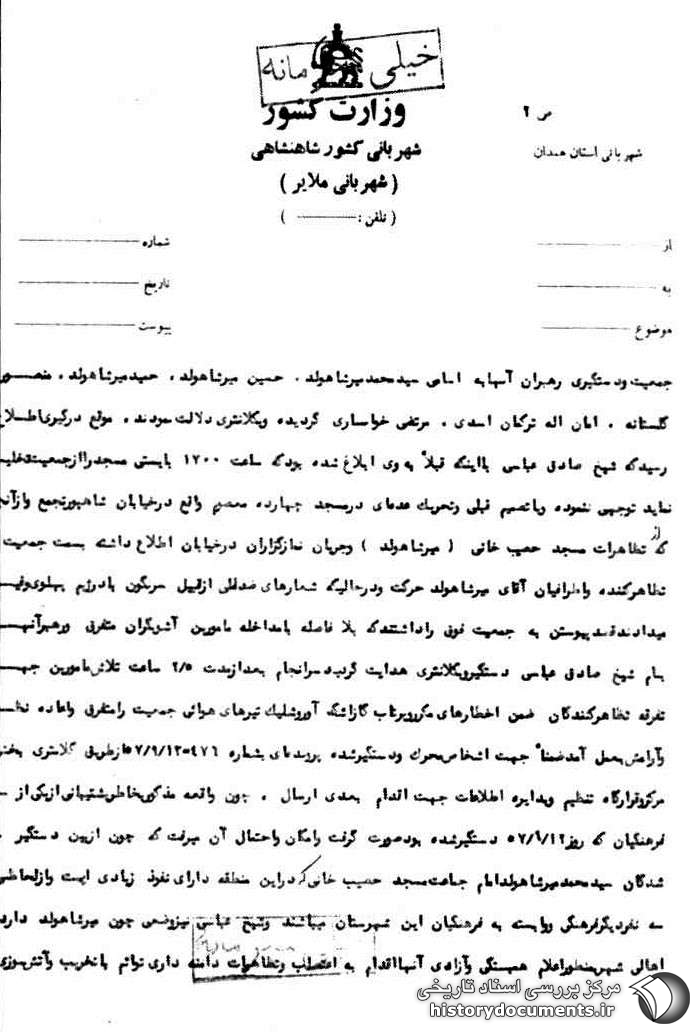 خیلی محرمانه
وزارت کشور
ص ۲
شهربانی کشور شاهنشاهی
شهربانی استان همدان
( شهربانی ملایر )
( تلفن : )
از
شماره
به
تاریخ
موضوع
پیوست
جمعیت ودستگیری رهبران آنها به اسامی سیدمحمدمیرشاهولد ، حسین میرشاهولد ، حمیدمیرشاهولد ، منصور
گلستانه ، امان اله ترکمان اسدی ، مرتضی خوانساری گردیده وبکلانتری دلالت نمودند ، موقع درگیری اطلاع
رسیدکه شیخ صادق عباسی بااینکه قبلاً به وی ابلاغ شده بودکه ساعت ۱۲۰۰ بایستی مسجدراازجمعیت تخلیه
نماید توجهی ننموده وباتصمیم قبلی وتحریک عده‌ای درمسجد چهارده معصوم واقع درخیابان شاهپورتجمع وازآنجا
که از تظاهرات مسجد حصیب خانی ( میرشاهولد ) وجریان نمازگزاران درخیابان اطلاع داشته بسمت جمعیت
تظاهرکننده واطرافیان آقای میرشاهولد حرکت ودرحالیکه شعارهای ضدملی ازقبیل سرنگون بادرژیم پهلوی وغیره
میدادندقصدپیوستن به جمعیت فوق راداشتندکه بلا فاصله بامداخله مامورین آشوبگران متفرق ورهبرآنها
بنام شیخ صادق عباسی دستگیروبکلانتری هدایت گردیدسرانجام بعدازمدت ۲/۵ ساعت تلاش مامورین جهت
تفرقه تظاهرکنندگان ضمن اخطارهای مکرروپرتاب گازاشک آوروشلیک تیرهای هوائی جمعیت رامتفرق واعاده نظم
وآرامش بعمل آمدضمناً جهت اشخاص محرک ودستگیرشده پرونده‌ای بشماره ۴۷۶-۵۷/۹/۱۲ ازطریق کلانتری بخش
مرکزوقرارگاه تنظیم وبدایره اطلاعات جهت اقدام بعدی ارسال ، چون واقعه مذکوربخاطرپشتیبانی ازیکی از
فرهنگیان که روز ۵۷/۹/۱۲ دستگیرشده بودصورت گرفت وامکان واحتمال آن میرفت که چون ازبین دستگیر
شدگان سیدمحمدمیرشاهولدامام جماعت مسجد حصیب خانی که دراین منطقه دارای نفوذ زیادی است وازلحاظی
سه نفردیگرفرهنگی ووابسته به فرهنگیان این شهرستان میباشند وشیخ عباسی نیزوضعی چون میرشاهولد دارد
اهالی شهربمنظوراعلام همبستگی وآزادی آنهااقدام به اعتصاب وتظاهرات دامنه داری توائم باتخریب وآتش سوزی
مرکز بررسی اسناد تاریخی
historydocuments.ir